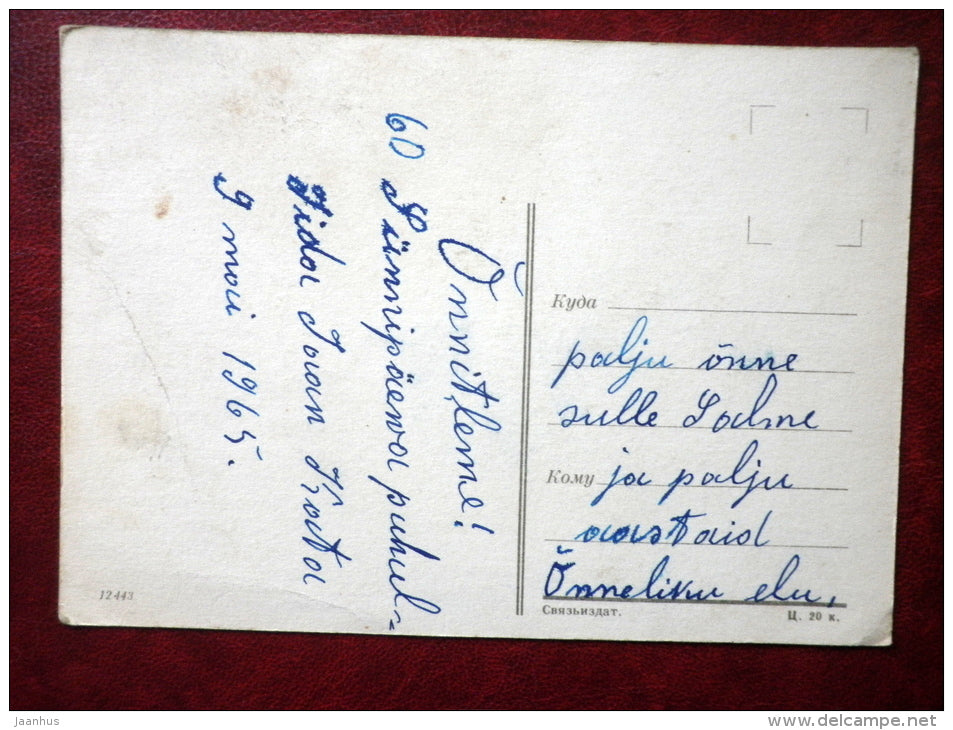 Õnnitleme!
60 Sünnipäeva puhul
Iida Juan Kata
9 mai 1965.
Куда
palju õnne
sulle Salme
Кому ja palju
aastaid
Õnneliku elu.
12443
Связьиздат.
Ц. 20 к.
jaanhus
http://www.delcampe.net